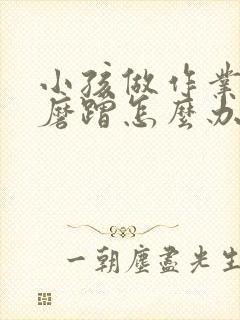 小孩做作業
磨蹭怎麼办
一朝塵盡光生